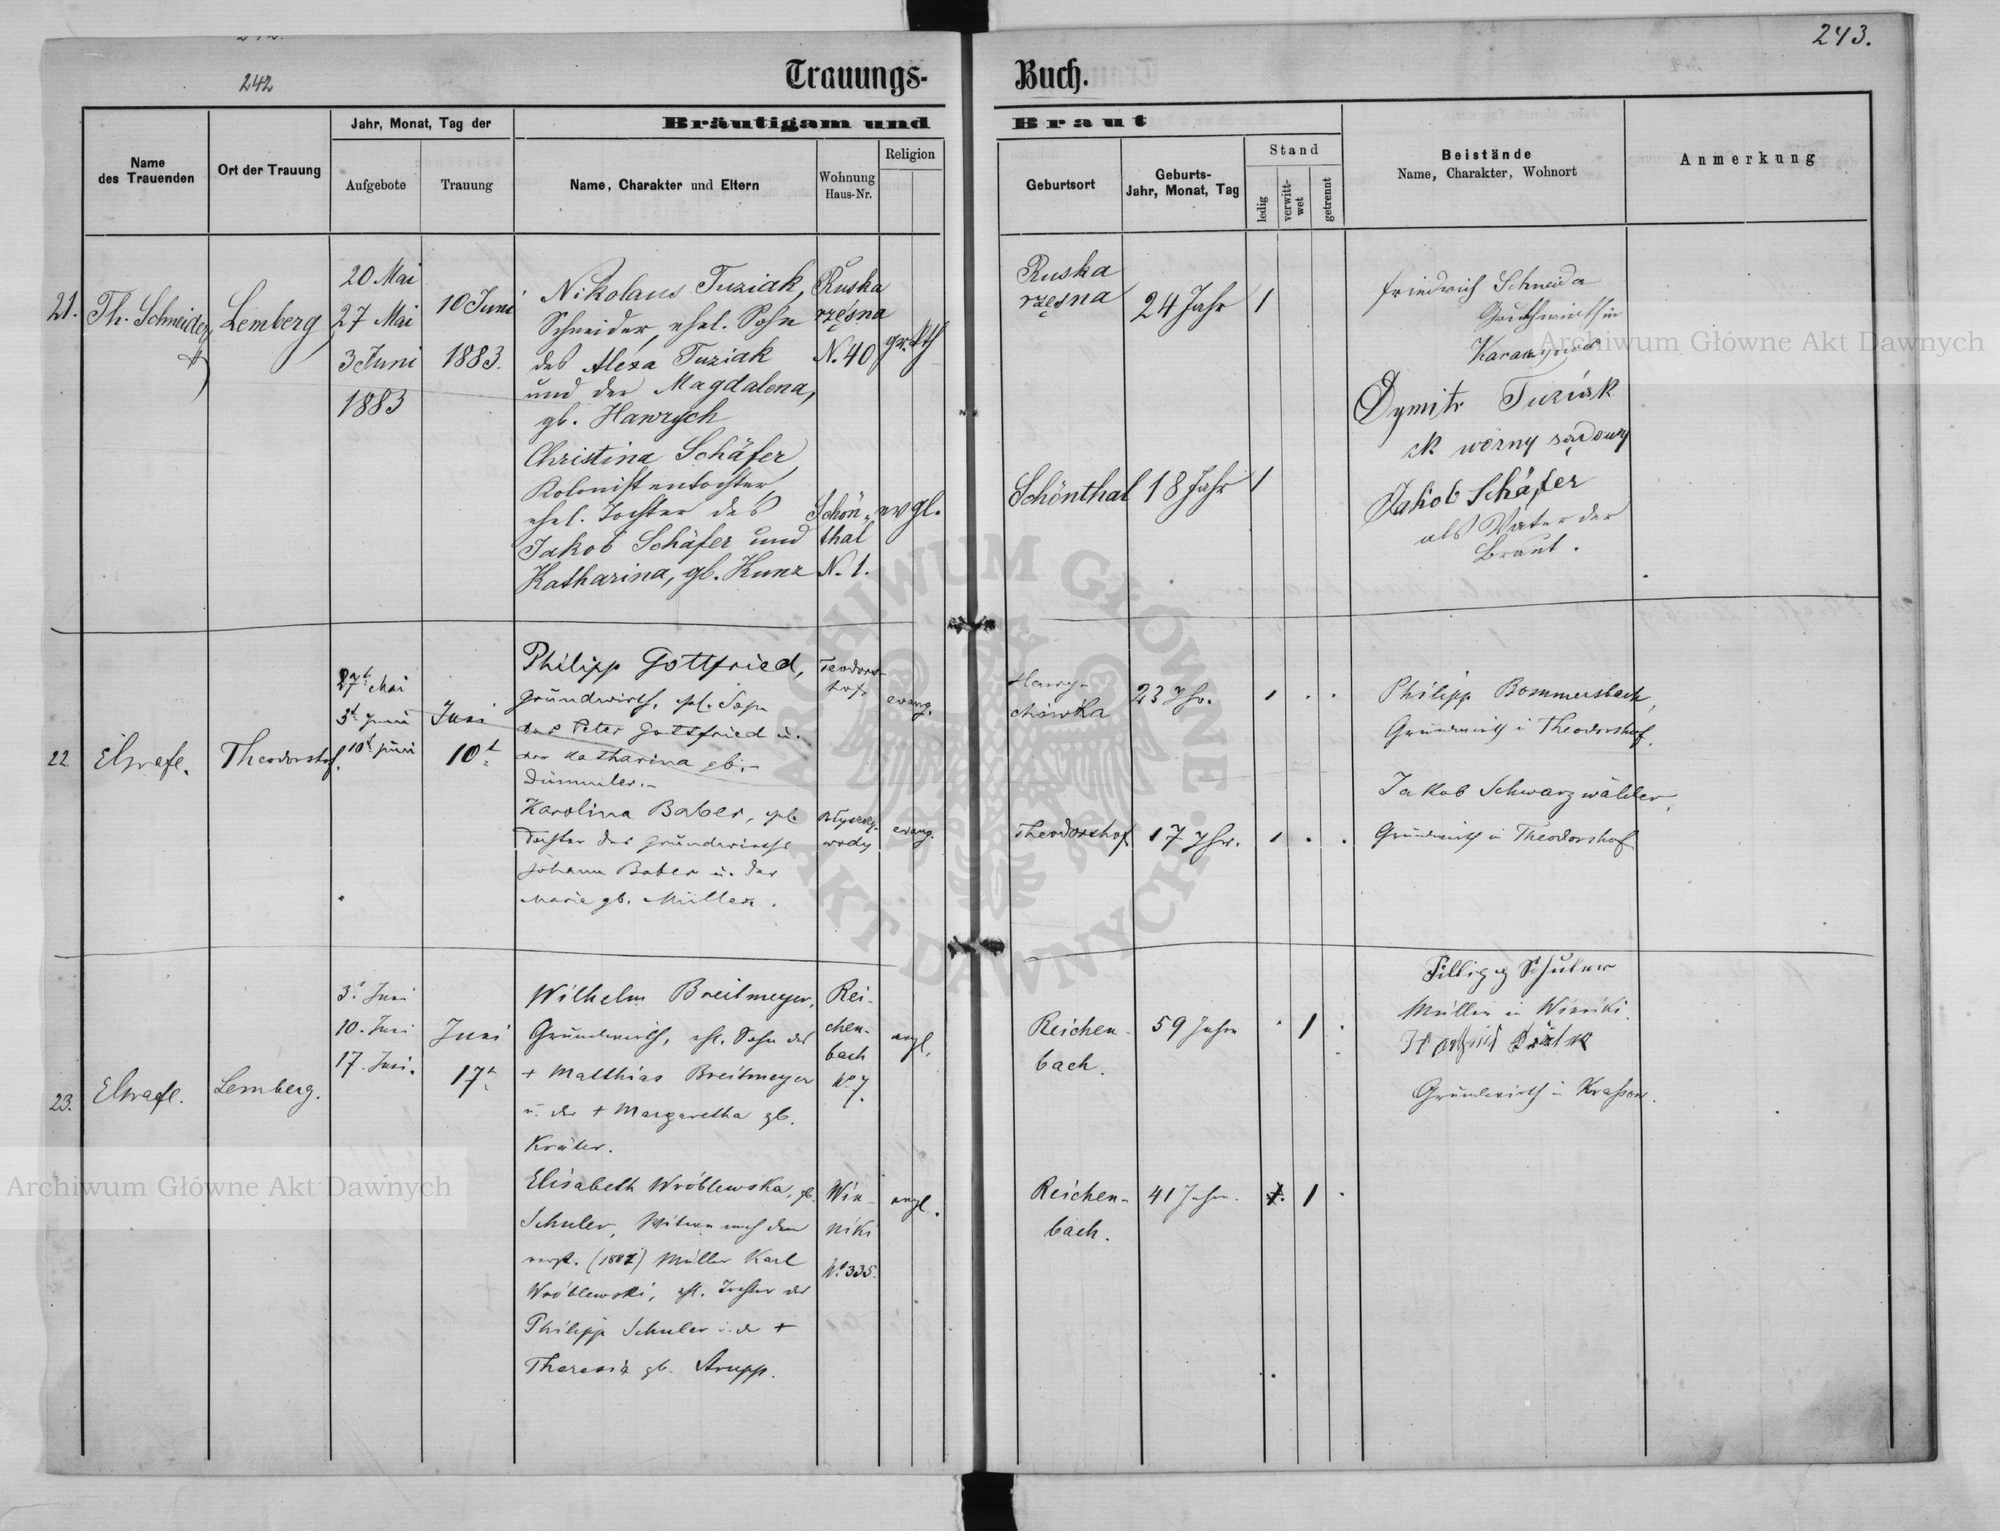 242
Trauungs-
Buch.
243.
Name
des Trauenden
Ort der Trauung
Jahr, Monat, Tag der
Aufgebote
Trauung
Bräutigam und
Braut
Name, Charakter und Eltern
Wohnung
Haus-Nr.
Religion
Geburtsort
Geburts-
Jahr, Monat, Tag
Stand
ledig
verwitt-
wet
getrennt
Beistände
Name, Charakter, Wohnort
Anmerkung
21.
Th. Schneider
Lemberg
20 Mai
27 Mai
3 Juni
1883
10 Juni
1883.
Nikolaus Tuziak,
Schneider, ehel. Sohn
des Alexa Tuziak
und der Magdalena,
gb. Hawrych
Christina Schäfer
Kolonistentochter
ehel. Tochter des
Jakob Schäfer und
Katharina, gb. Kunz
Ruska
rzęsna
N. 40
gr. kth
Schön-
thal
N. 1.
evgl.
Ruska
rzęsna
24 Jahr
1
Schönthal
18 Jahr
1
Friedrich Schneida
Dymitr Tuziak
ck wozny sądowy
Jakob Schäfer
als Vater der
Braut.
22
Theodorshof.
27t Mai
3t Juni
10t Juni
Juni
10t
Philipp Gottfried,
Grundwirth, ehl. Sohn
des Peter Gottfried u.
der Katharina gb.
Dümmler.
Karolina Baber, ehl.
Tochter des Grundwirths
Johann Baber u. der
Marie gb. Müller.
Teodors-
hof
evang.
wody
evang.
23 Jhr.
Theodorshof
17 Jhr.
Philipp Bommersbach,
Grundwirth in Theodorshof.
Jakob Schwarzwälder,
Grundwirth in Theodorshof
23.
Lemberg.
3. Juni
10. Juni
17. Juni.
Juni
17t
Wilhelm Breitmeyer,
Grundwirth, ehl. Sohn des
+ Matthias Breitmeyer
u. der + Margaretha gb.
Kräter.
Elisabeth Wróblewska, gb.
Schuler, Witwe nach dem
verst. Müller Karl
Wróblewski, ehl. Tochter des
Philipp Schuler u. der +
Theresia gb. Arupp.
Rei-
chen-
bach
No 7.
evgl.
Win-
niki
No 335.
evgl.
Reichen-
bach.
59 Jahre
1
Reichen-
bach.
41 Jahre.
1
Müller in Winniki.
Grundwirth in
Archiwum Główne Akt Dawnych
Archiwum Główne Akt Dawnych
ARCHIWUM GŁÓWNE
AKT DAWNYCH